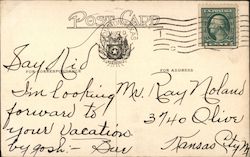 POST CARD
Say Kid
FOR CORRESPONDENCE
FOR ADDRESS
I'm looking
forward to
your vacation
by gosh — 
Mr. Ray Noland
3740 Olive
Kansas City